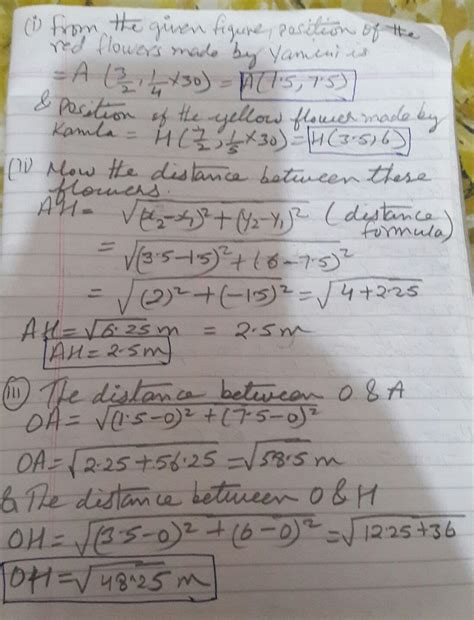 (i) from the given figure, position of the
red flowers made by Yamini is
= A (3/2, 1/4 ×30) = A(1.5, 7.5)
& position of the yellow flower made by
Kamla = H (7/2, 1/5 ×30) = H(3.5, 6)
(ii) Now the distance between these
flowers.
AH = √(x₂-x₁)² + (y₂-y₁)² (distance formula)
= √(3.5-1.5)² + (6-7.5)²
= √(2)² + (-1.5)² = √4+2.25
AH = √6.25 m = 2.5m
AH = 2.5 m
(iii) The distance between O & A
OA = √(1.5-0)² + (7.5-0)²
OA = √2.25 + 56.25 = √58.5 m
& The distance between O & H
OH = √(3.5-0)² + (6-0)² = √12.25+36
OH = √48.25 m